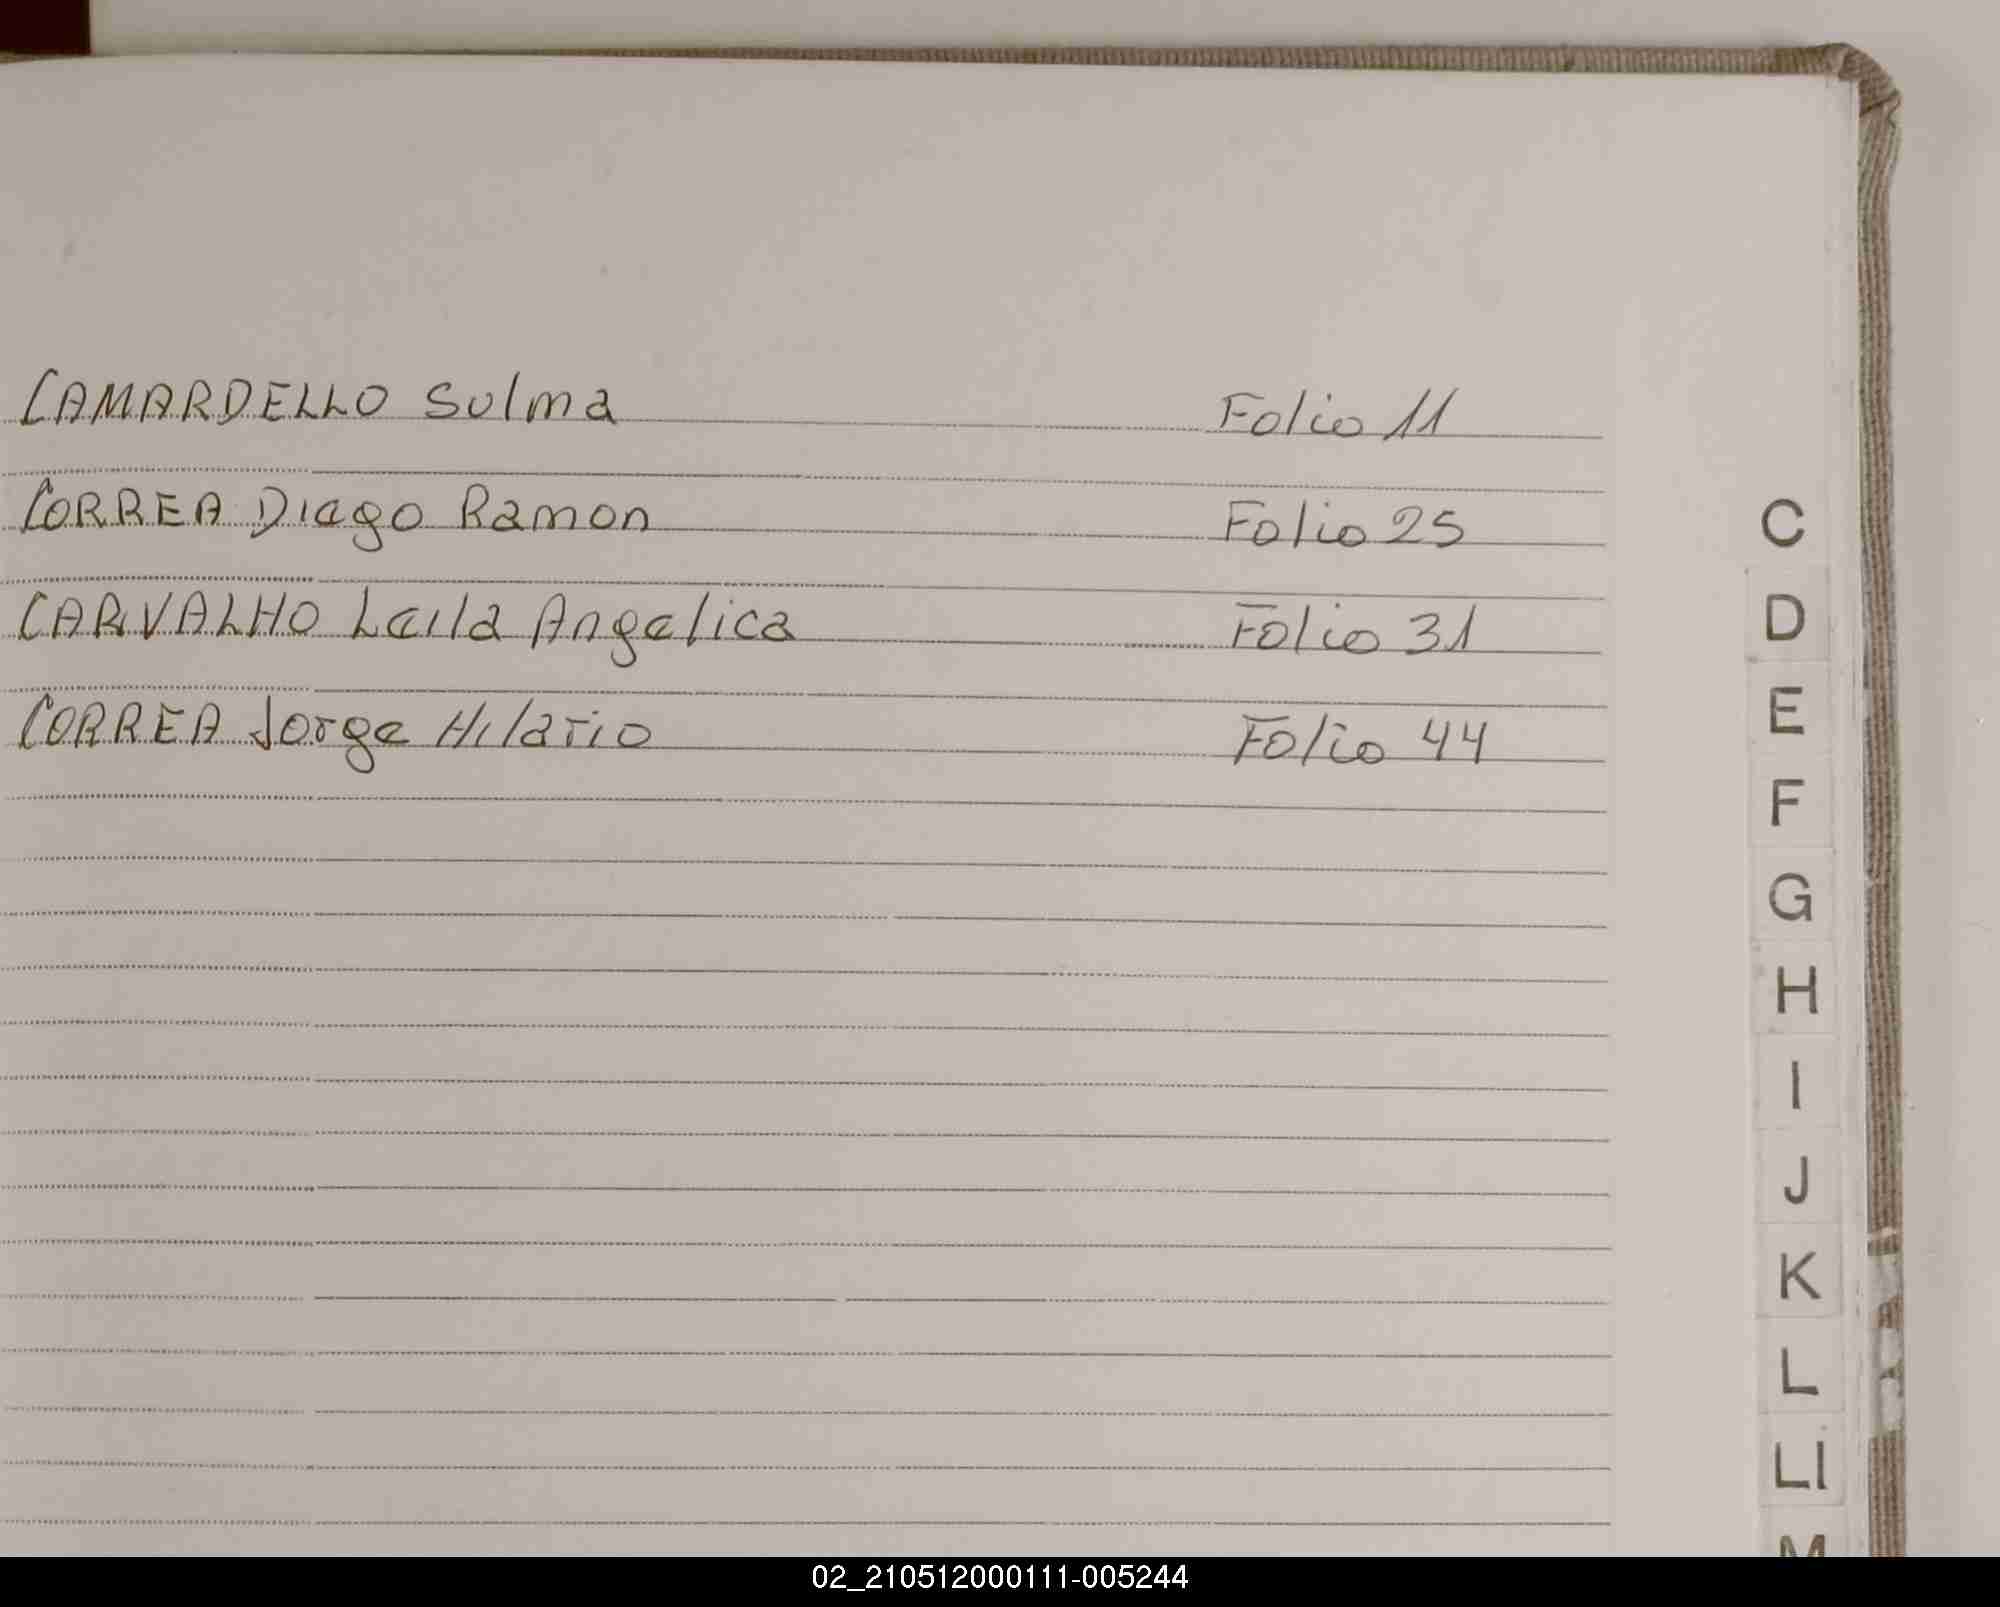 CAMARDELLO Sulma Folio 11
CORREA Diego Ramon Folio 25
CARVALHO Leila Angelica Folio 31
CORREA Jorge Hilario Folio 44
C
D
E
F
G
H
I
J
K
L
Ll
M
02_210512000111-005244